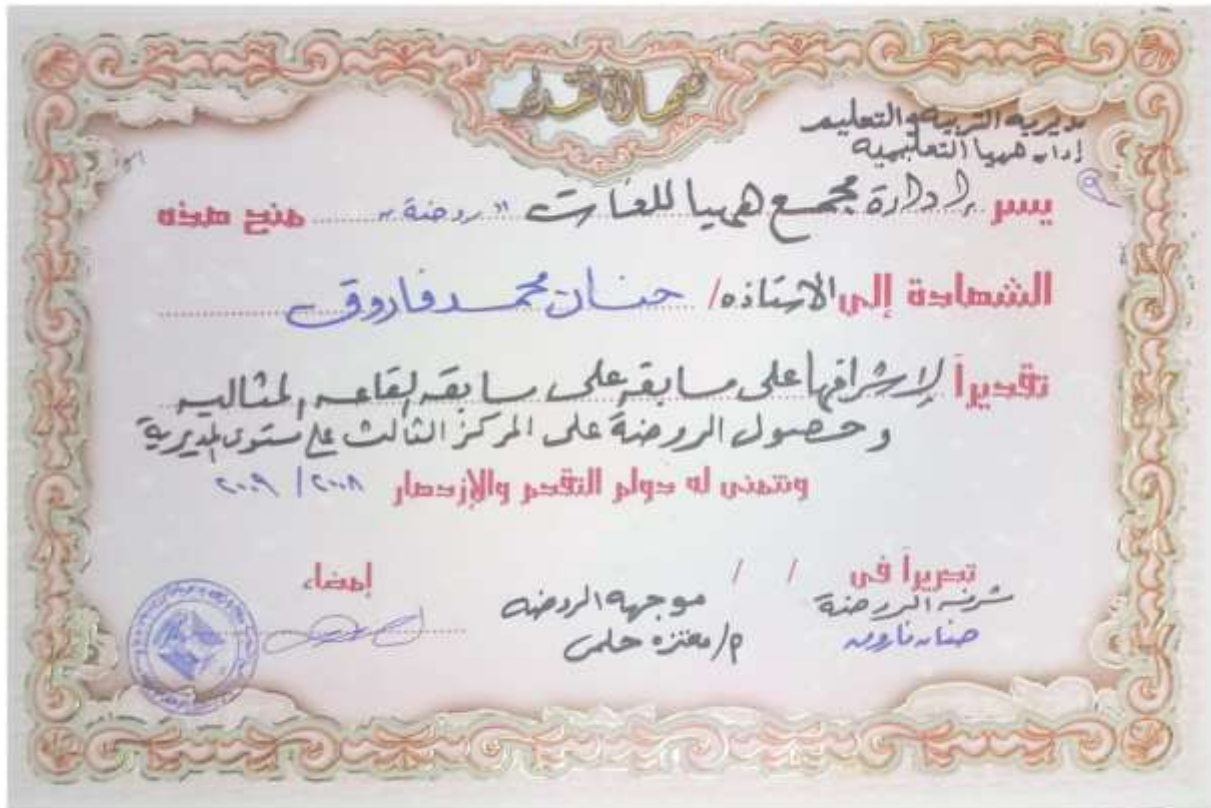 شهادة تقدير
مديرية التربية والتعليم
إدارة ههيا التعليمية
يسر إدارة مجمع ههيا للغات "روضة" منح هذه
الشهادة إلى الاستاذه/ حنان محمد فاروق
تقديراً لإشرافها على مسابقه على سابقه لقاعه المثاليه
وحصول الروضة على المركز الثالث على مستوى المديرية
ونتمنى له دوام التقدم والإزدهار ٢٠٠٨ / ٢٠٠٩
تحريراً فى / / إمضاء
مشرفه الروضة موجهه الروضه
حنان فاروق م/ معتزه حلمى